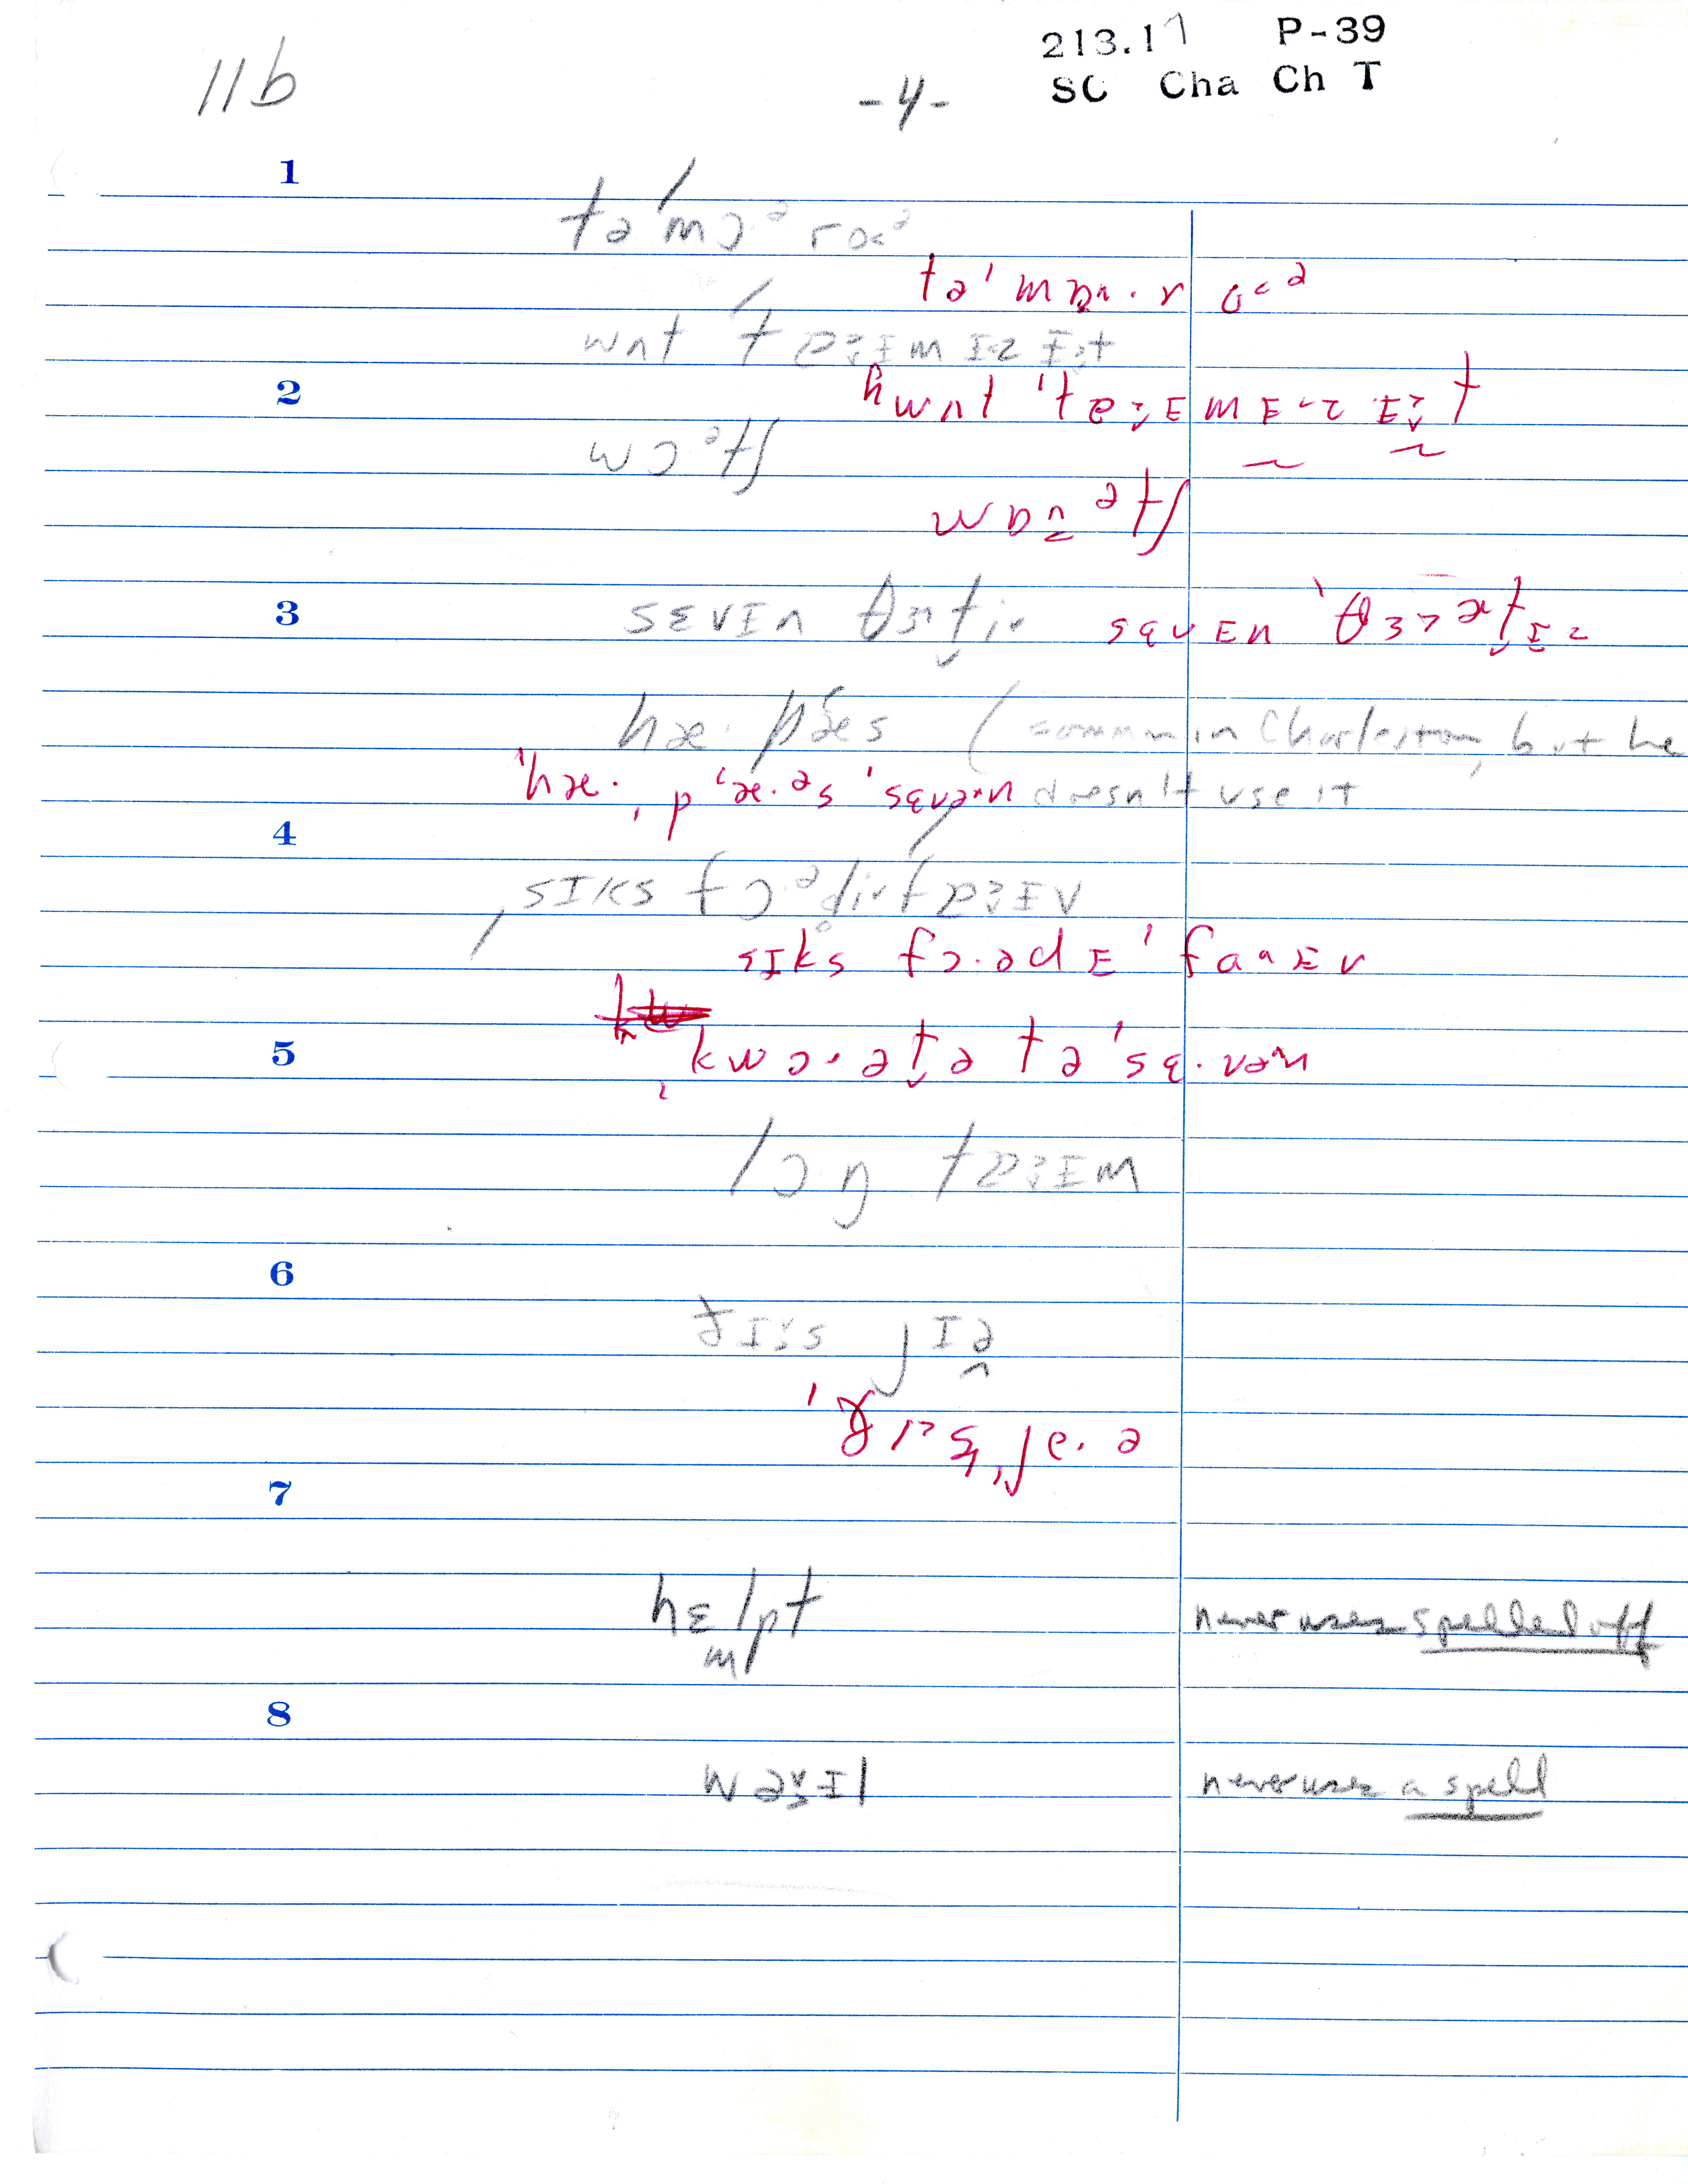 213.17 P-39
11b -4- SC Cha Ch T
1
təˈmɔᵊroᵊ
təˈmɒ·roᵊ
wʌt tɐɪm ɪz ɪt
2
hwʌt ˈtɐɪm ɪz ɪt
wɔᵊtʃ
wɒᵊtʃ
3
sɛvɪn θɜti sɛvɪn ˈθɜᵊtɪ
hæ· pæs (common in Charleston, but he
ˈhæ· pæ·əs ˈsɛvən doesn't use it
4
sɪks fɔᵊdi faɪv
sɪks fɔ·ədɪ ˈfaɪv
5
kwɔ·ətə tə ˈsɛ·vən
lɔŋ tɐɪm
6
ðɪs jɪə
ˈðɪs je·ə
7
hɛlpt never uses spelled off
m
8
wəɪl never uses a spell